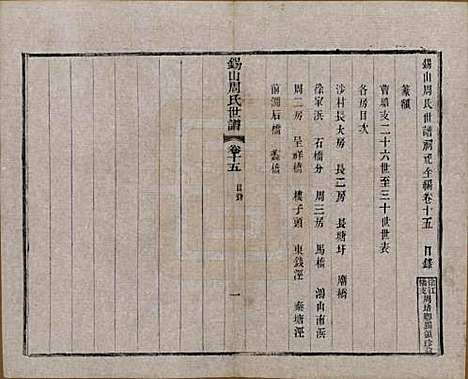 錫山周氏世譜祠戒全編卷十五 目錄
篆額
賣墻支二十六世至三十世世表
各房目次
涉村長大房 長二房 長塘圩 廟橋
徐家浜 石橋分 周三房 馬橋 鴻山南浜
周二房 呈祥橋 樓子頭 東錢涇 秦塘涇
前澗后橋 蠡橋
錫山周氏世譜 卷十五 目錄 一